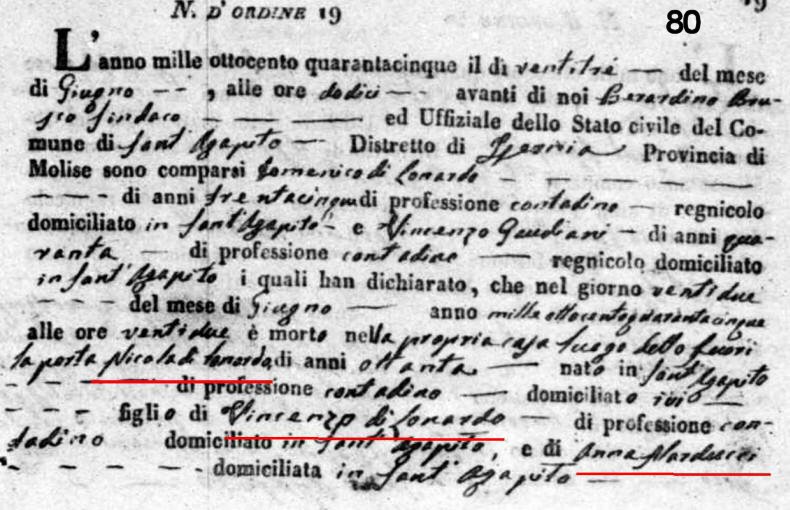 N. D'ORDINE 19
80
19
L'anno mille ottocento quarantacinque il di ventitré — del mese
di Giugno — — , alle ore dodici — — avanti di noi Berardino Bru-
sco Sindaco — — — ed Uffiziale dello Stato civile del Co-
mune di Sant'Agapito — Distretto di Isernia Provincia di
Molise sono comparsi Domenico di Lonardo — — —
— — — di anni trentacinque di professione contadino — regnicolo
domiciliato in Sant'Agapito — e Vincenzo Gaudiani — di anni qua-
ranta — di professione contadino — regnicolo domiciliato
in Sant'Agapito i quali han dichiarato, che nel giorno ventidue
— — — del mese di Giugno — anno mille ottocentoquarantacinque
alle ore ventidue è morto nella propria casa luogo detto fuori
la porta Nicola di Lonardo, di anni ottanta — nato in Sant'Agapito
— — — di professione contadino — domiciliato ivi —
— — — figlio di Vincenzo di Lonardo — di professione con-
tadino domiciliato in Sant'Agapito, e di Anna Narducci
— — — — domiciliata in Sant'Agapito —